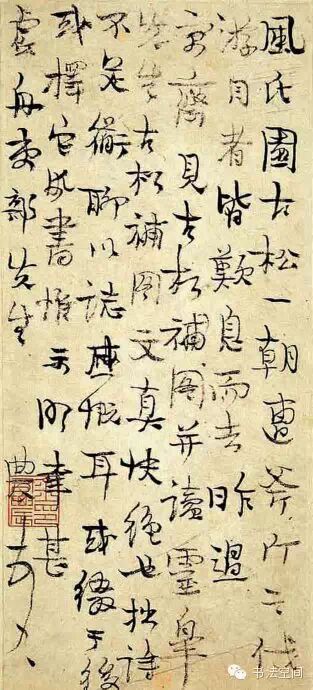 風氏園古松一朝遭斧斤之伐
游目者皆歎息而去昨過
高齋見古松補圖并讀靈皋
先生古松補圖文真快絕也拙詩
不足 聊以誌感慨耳或綴于後
或擇它紙書惟示明幸甚
虛舟吏部先生 農
书法空间